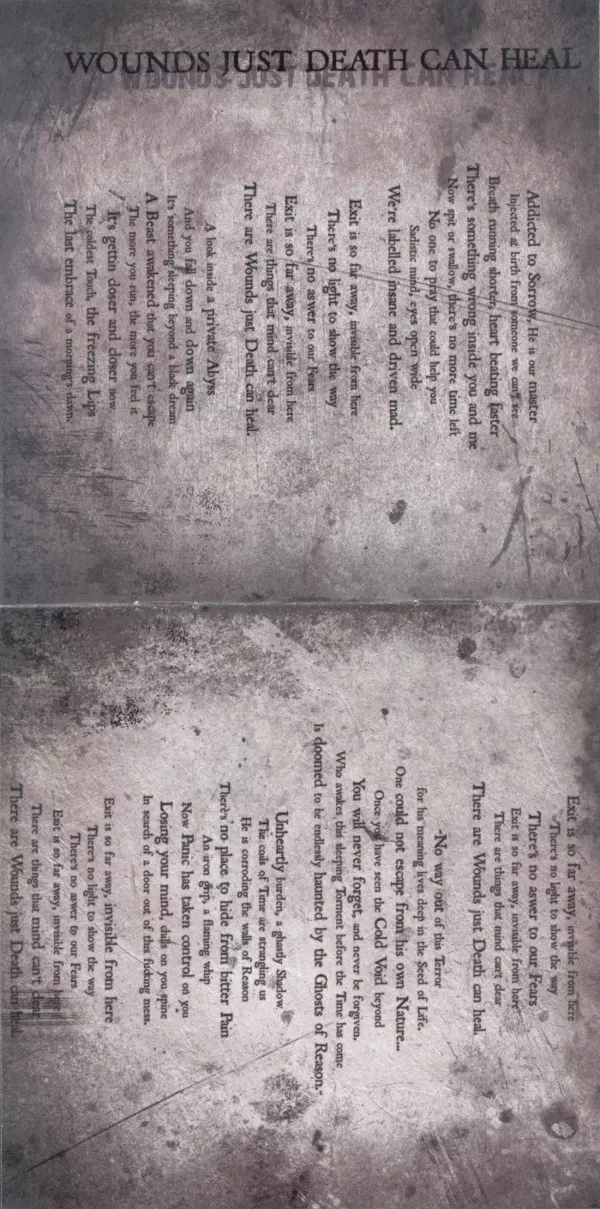 WOUNDS JUST DEATH CAN HEAL
WOUNDS JUST DEATH CAN HEAL
Addicted to Sorrow, He is our master
Injected at birth from someone we can't see
Breath running shorter, heart beating faster
There's something wrong inside you and me
Now spit or swallow, there's no more time left
No one to pray that could help you
Sadistic mind, eyes open wide
We're labelled insane and driven mad.
Exit is so far away, invisible from here
There's no light to show the way
There's no aswer to our Fears
Exit is so far away, invisible from here
There are things that mind can't clear
There are Wounds just Death can heal.
A look inside a private Abyss
And you fall down and down again
It's something sleeping beyond a black dream
A Beast awakened that you can't escape
The more you run, the more you feel it
It's gettin closer and closer now
The coldest Touch, the freezing Lips
The last embrace of a morningy dawn.
Exit is so far away, invisible from here
There's no light to show the way
There's no aswer to our Fears
Exit is so far away, invisible from here
There are things that mind can't clear
There are Wounds just Death can heal.
-No way out of this Terror
for his meaning lives deep in the Seed of Life.
One could not escape from his own Nature...
Once you have seen the Cold Void beyond
You will never forget, and never be forgiven.
Who awakes this sleeping Torment before the Time has come
Is doomed to be endlessly haunted by the Ghosts of Reason.-
Unheartly burden, a ghastly Shadow
The coils of Time are strangling us
He is corroding the walls of Reason
There's no place to hide from bitter Pain
An iron grip, a flaming whip
Now Panic has taken control on you
Losing your mind, chills on you spine
In search of a door out of this fucking mess.
Exit is so far away, invisible from here
There's no light to show the way
There's no aswer to our Fears
Exit is so far away, invisible from here
There are things that mind can't clear
There are Wounds just Death can heal.